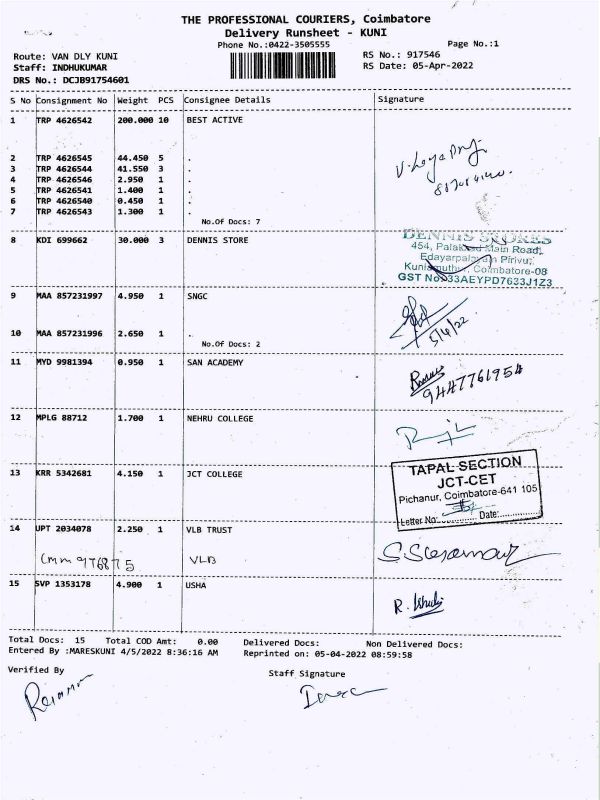 THE PROFESSIONAL COURIERS, Coimbatore
Delivery Runsheet - KUNI
Phone No.:0422-3505555
Page No.:1
Route: VAN DLY KUNI
Staff: INDHUKUMAR
DRS No.: DCJB91754601
RS No.: 917546
RS Date: 05-Apr-2022
S No Consignment No Weight PCS Consignee Details Signature
1 TRP 4626542 200.000 10 BEST ACTIVE
2 TRP 4626545 44.450 5 .
3 TRP 4626544 41.550 3 .
4 TRP 4626546 2.950 1 .
5 TRP 4626541 1.400 1 .
6 TRP 4626540 0.450 1 .
7 TRP 4626543 1.300 1 .
No.Of Docs: 7
8 KDI 699662 30.000 3 DENNIS STORE
DENNIS STORES
454, Palakkad Main Road,
Edayarpalayam Pirivu,
Kuniamuthur, Coimbatore-08
GST No:33AEYPD7633J1Z3
9 MAA 857231997 4.950 1 SNGC
10 MAA 857231996 2.650 1 .
5/4/22
No.Of Docs: 2
11 MYD 9981394 0.950 1 SAN ACADEMY
9447761954
12 MPLG 88712 1.700 1 NEHRU COLLEGE
13 KRR 5342681 4.150 1 JCT COLLEGE
TAPAL SECTION
JCT-CET
Pichanur, Coimbatore-641 105
Letter No:............ Date:............
14 UPT 2034078 2.250 1 VLB TRUST
Cmm 976875 VLB
15 SVP 1353178 4.900 1 USHA
Total Docs: 15 Total COD Amt: 0.00 Delivered Docs: Non Delivered Docs:
Entered By :MARESKUNI 4/5/2022 8:36:16 AM Reprinted on: 05-04-2022 08:59:58
Verified By
Staff Signature